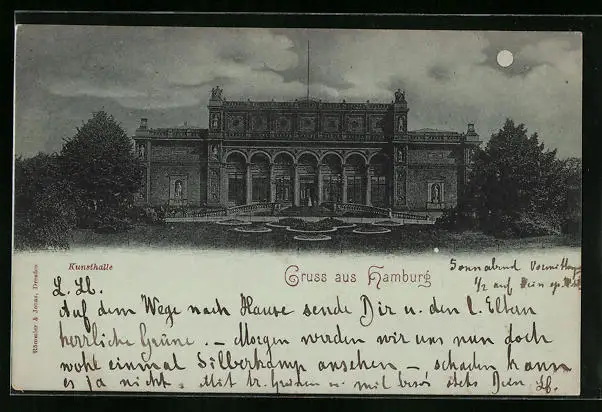 Kunsthalle
Gruss aus Hamburg
Römmler & Jonas, Dresden
Sonnabend Vormittag
1/2 auf
L. Lb.
Auf dem Wege nach Hause sende Dir u. den l. Eltern
herrliche Grüße. – Morgen werden wir uns nun doch
wohl einmal Silberkamp ansehen – schaden kann
es ja nicht. Mit hz. Grüßen u. mit stets Dein Lb.